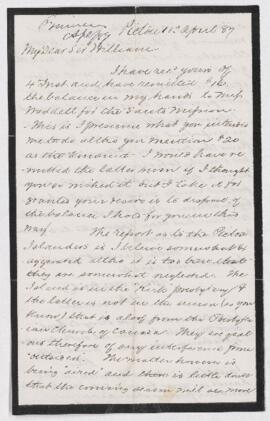 Pictou 11th April '87
My Dear Sir William
I have recd yours of
4th Inst and have remitted $ 
the balance in my hands to Miss
Waddell for the Tacets Mission
This is I presume what you intended
me to do altho you mention $20
as the amount. I would have re
mitted the latter sum if I thought
you so wished it but I take it for
granted your desire is to dispose of
the balance I hold for you in this
way. The report as to the Pictou
Islanders is I believe somewhat ex
aggerated altho it is too true that
they are somewhat neglected. The
Island is in the "Kirk" presbytery &
the latter is not in the union (as you
know) but is aloof from the Presbyte
rian Church of Canada. They are jeal
ous therefore of any interference from
"outsiders". The matter however is
being "aired" and there is little doubt
that the coming season will see more